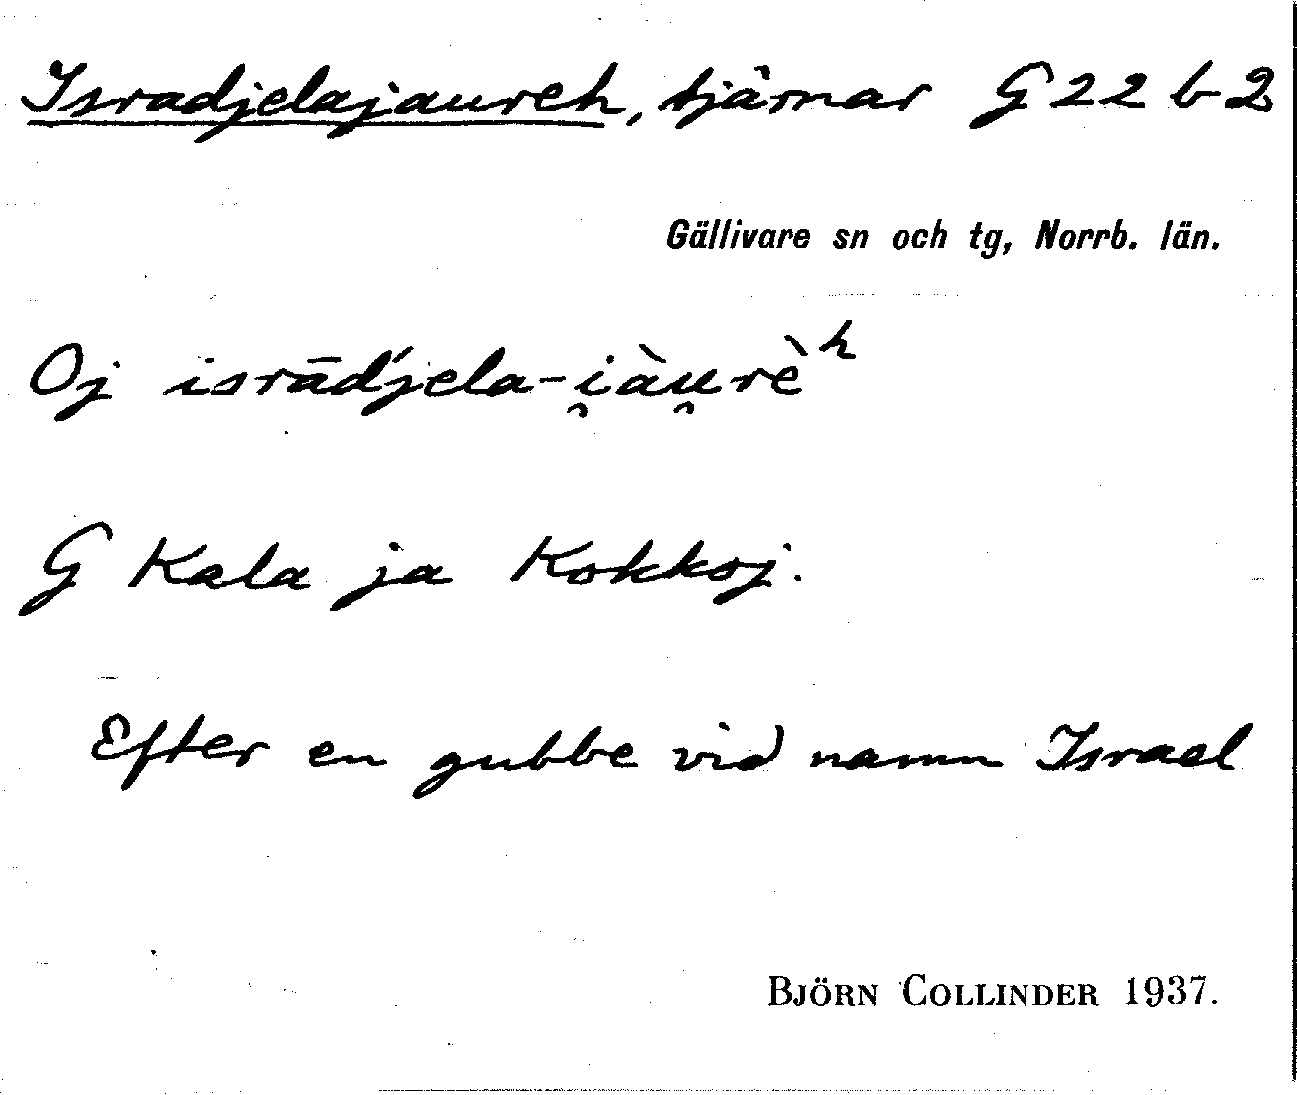 Isradjelajaureh, tjärnar G 22 b 2
Gällivare sn och tg, Norrb. län.
Oj isrād́jela-i̯àu̯rèʰ
G Kala ja Kokkoj.
Efter en gubbe vid namn Israel
BJÖRN COLLINDER 1937.